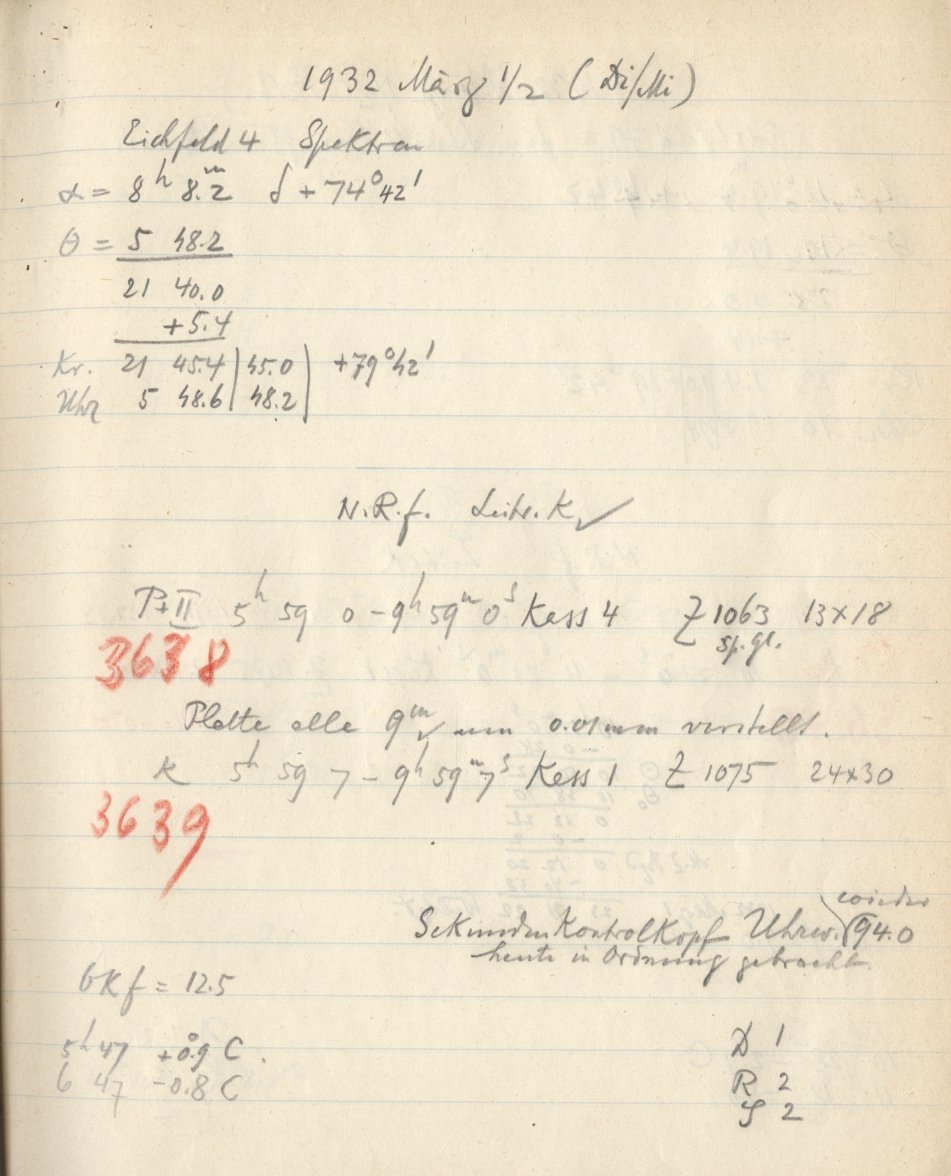 1932 März 1/2 (Di/Mi)
Eichfeld 4 Spektren
α = 8h 8.m2 δ + 74°42'
θ = 5 48.2
21 40.0
+5.4
Kr. 21 45.4 | 45.0 | +79°42'
Uhr 5 48.6 | 48.2 |
N.R.f. Leitr. K ✓
P+II 5h 59 0 - 9h 59m 0s Kass 4 Z 1063 13x18
sp.gl.
3638
Platte alle 9m um 0.01mm verstellt.
K 5h 59 7 - 9h 59m 7s Kass 1 Z 1075 24x30
3639
wieder
Sekundenkontrolkopf Uhrw. 94.0
heute in Ordnung gebracht.
6Kf = 12.5
5h 47 +0.°9 C.
6 47 -0.8 C
D 1
R 2
S 2